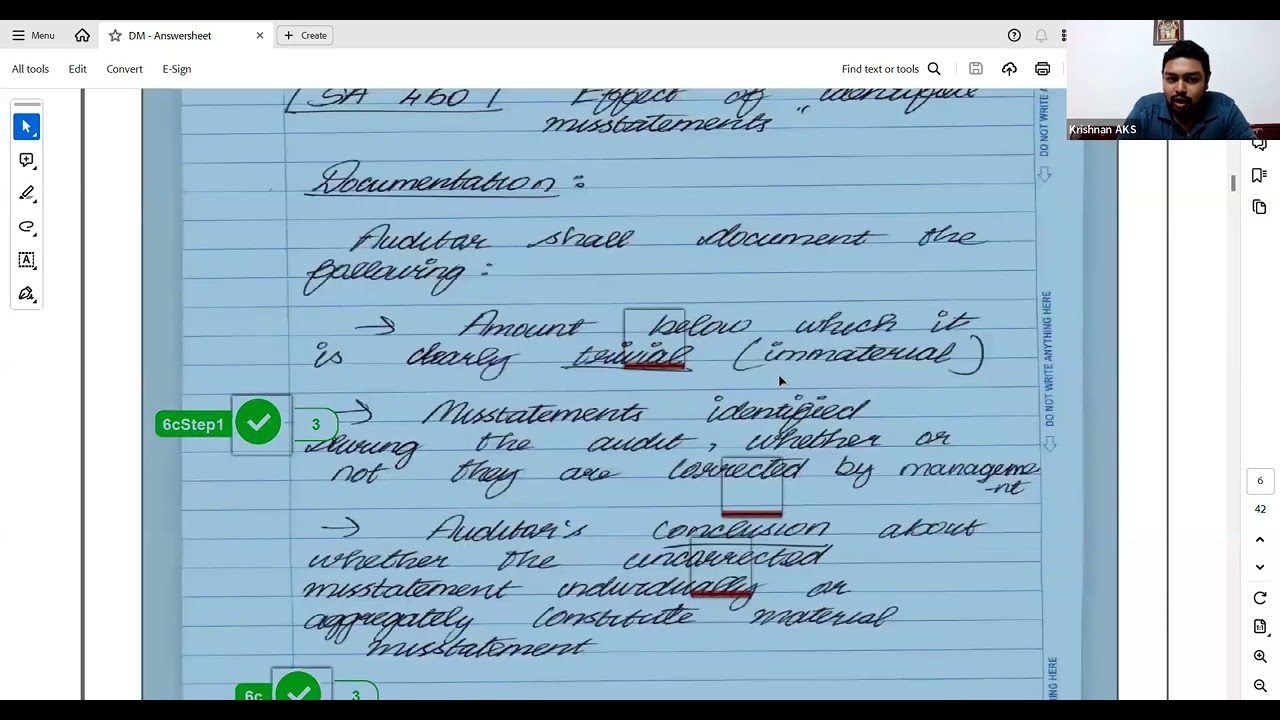 Menu
DM - Answersheet
Create
All tools
Edit
Convert
E-Sign
Find text or tools
Krishnan AKS
SA 450 Effect of "identified
misstatements"
Documentation:
Auditor shall document the
following:
→ Amount below which it
is clearly trivial (immaterial)
→ Misstatements identified
during the audit, whether or
not they are corrected by manageme
-nt
→ Auditor's conclusion about
whether the uncorrected
misstatement individually or
aggregately constitute material
misstatement
6cStep1
3
6c
3
DO NOT WRITE A
DO NOT WRITE ANYTHING HERE
THING HERE
6
42